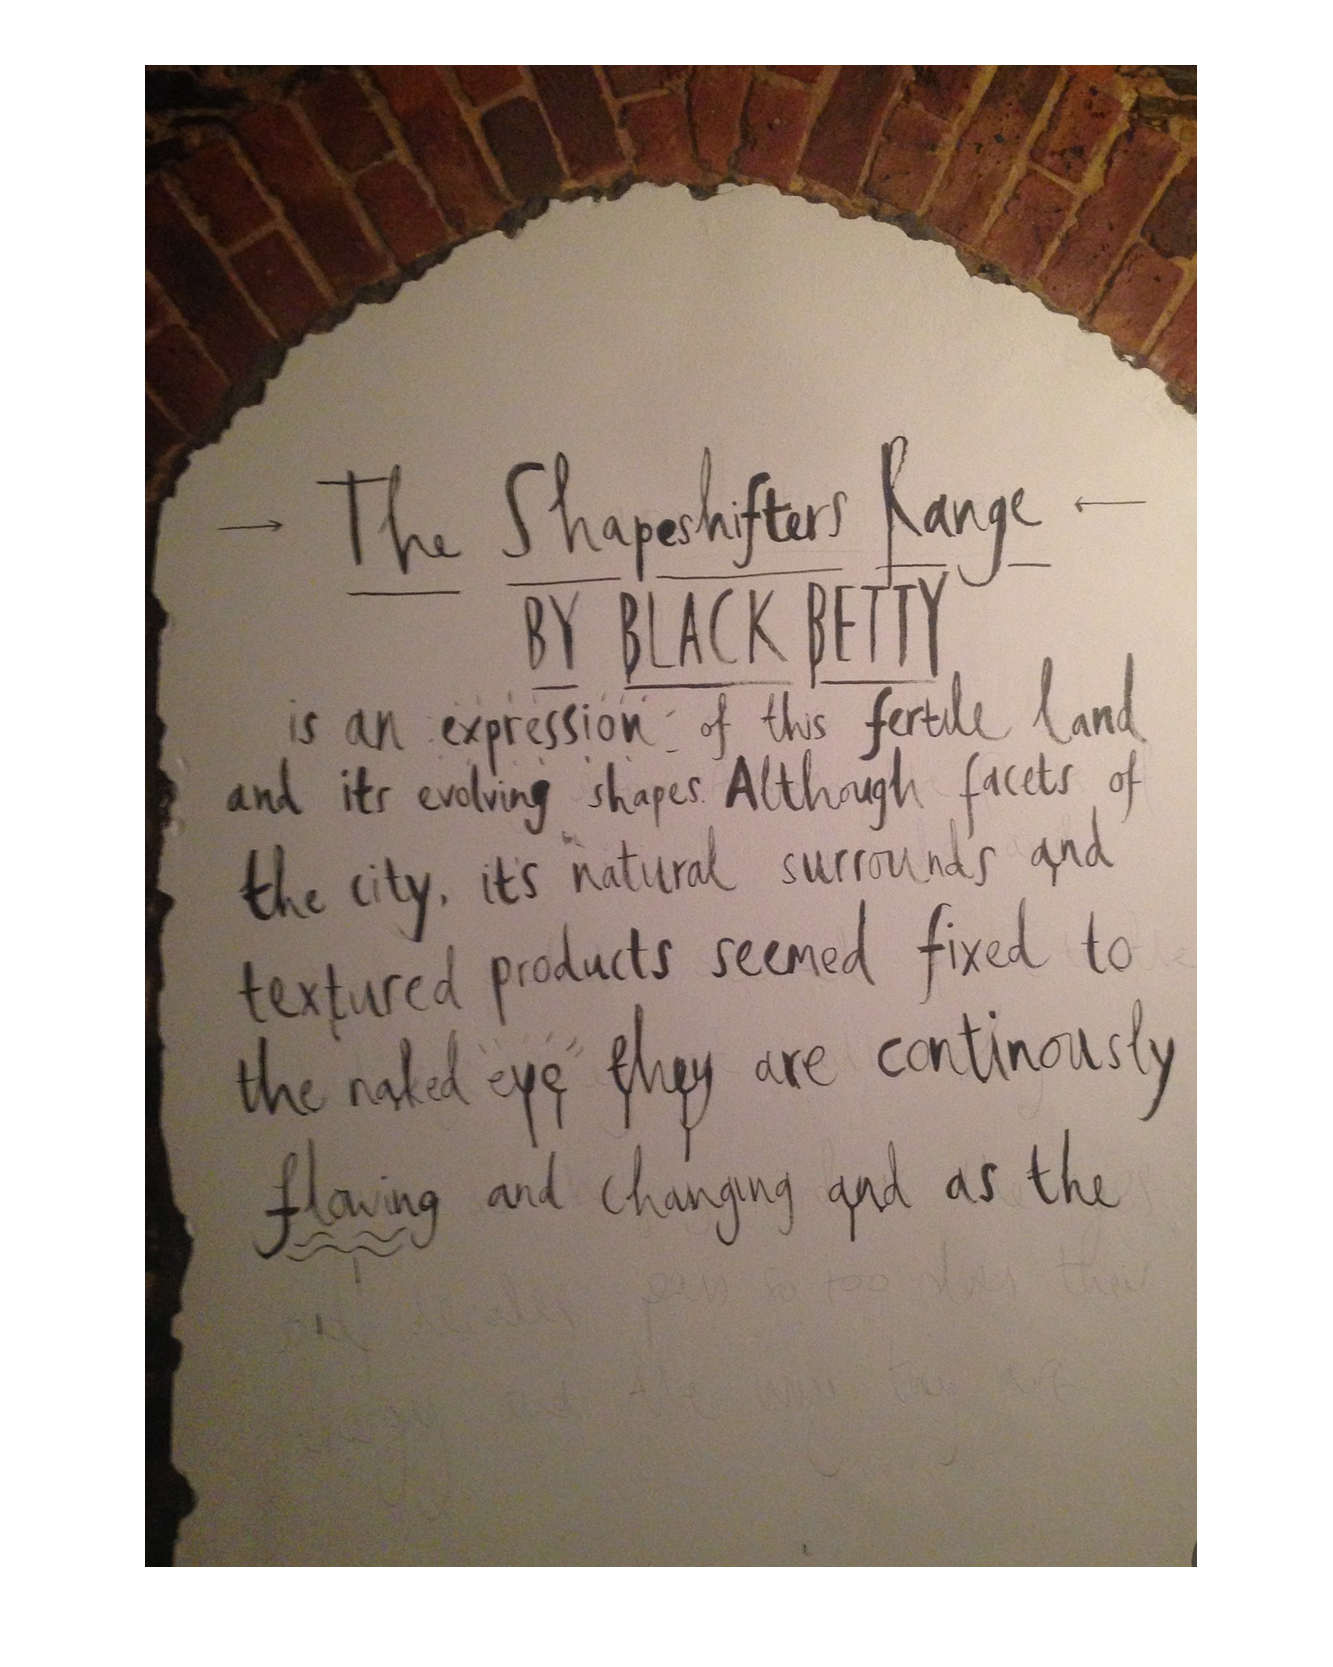 → The Shapeshifters Range ←
BY BLACK BETTY
is an expression of this fertile land
and its evolving shapes. Although facets of
the city, it's natural surrounds and
textured products seemed fixed to
the naked "eye" they are continously
flowing and changing and as the